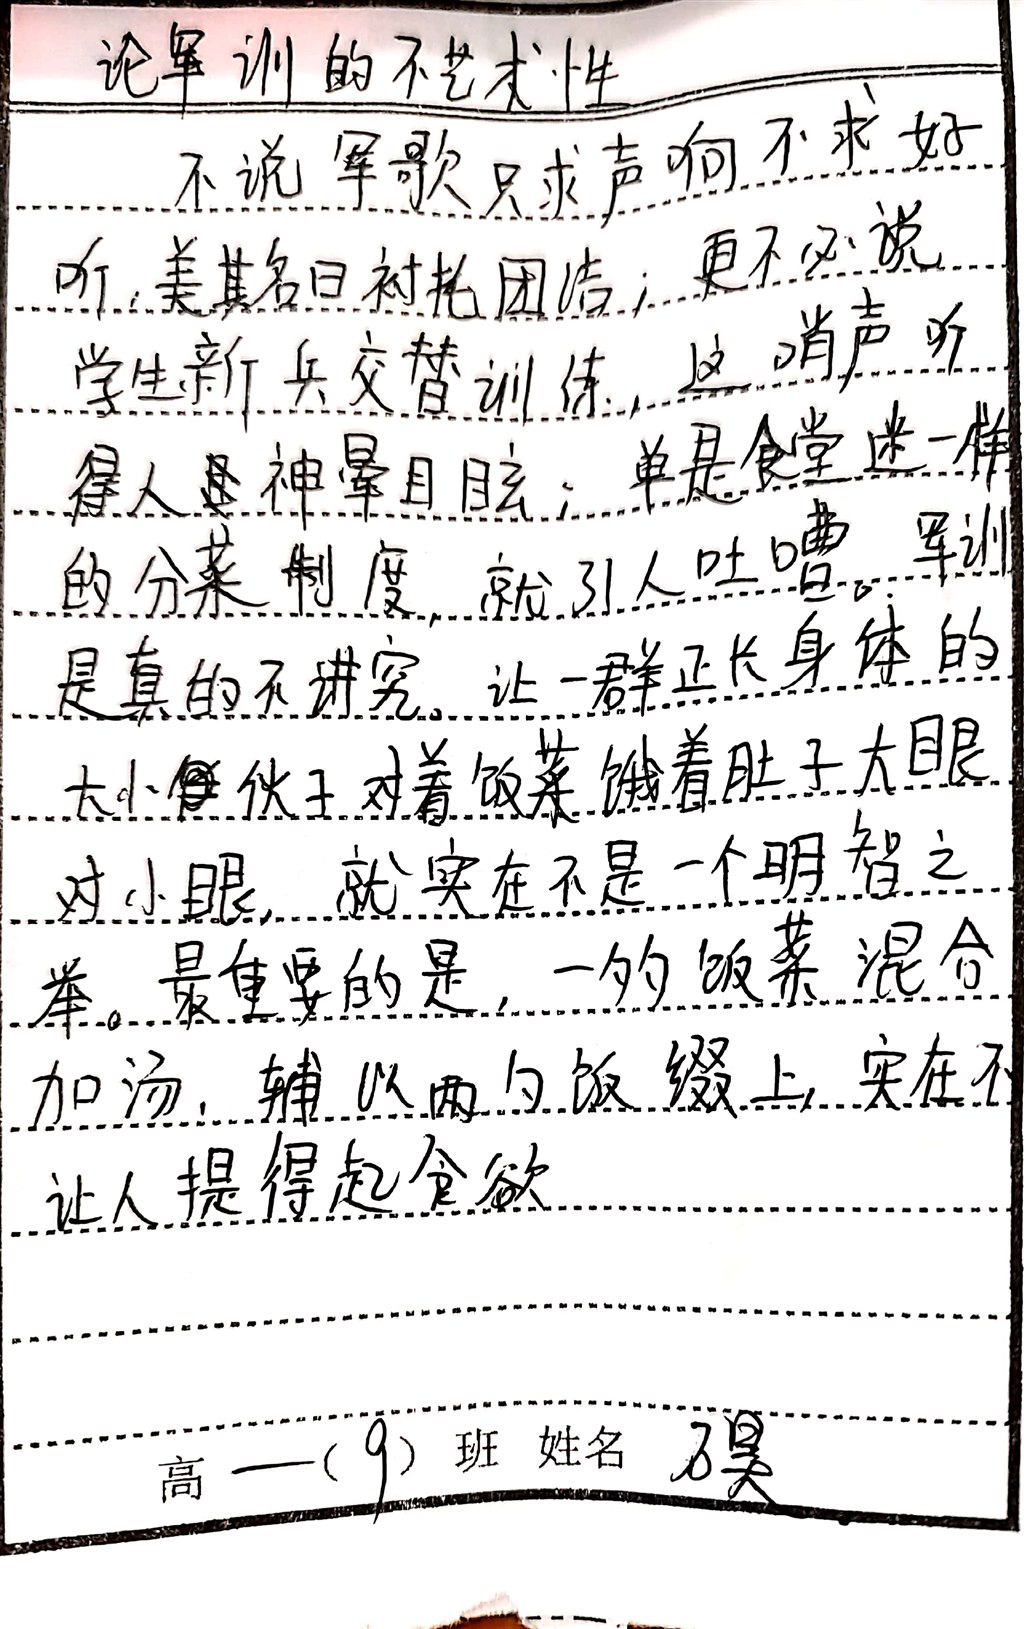 论军训的不艺术性
不说军歌只求声响不求好
听，美其名曰衬托团洁；更不必说
学生新兵交替训练，这哨声听
得人是神晕目眩；单是食堂迷一样
的分菜制度，就引人吐嘈。军训
是真的不讲究。让一群正长身体的
大小伙子对着饭菜饿着肚子大眼
对小眼，就实在不是一个明智之
举。最重要的是，一勺饭菜混合
加汤，辅以两勺饭缀上，实在不
让人提得起食欲
高一（9）班 姓名 石昊